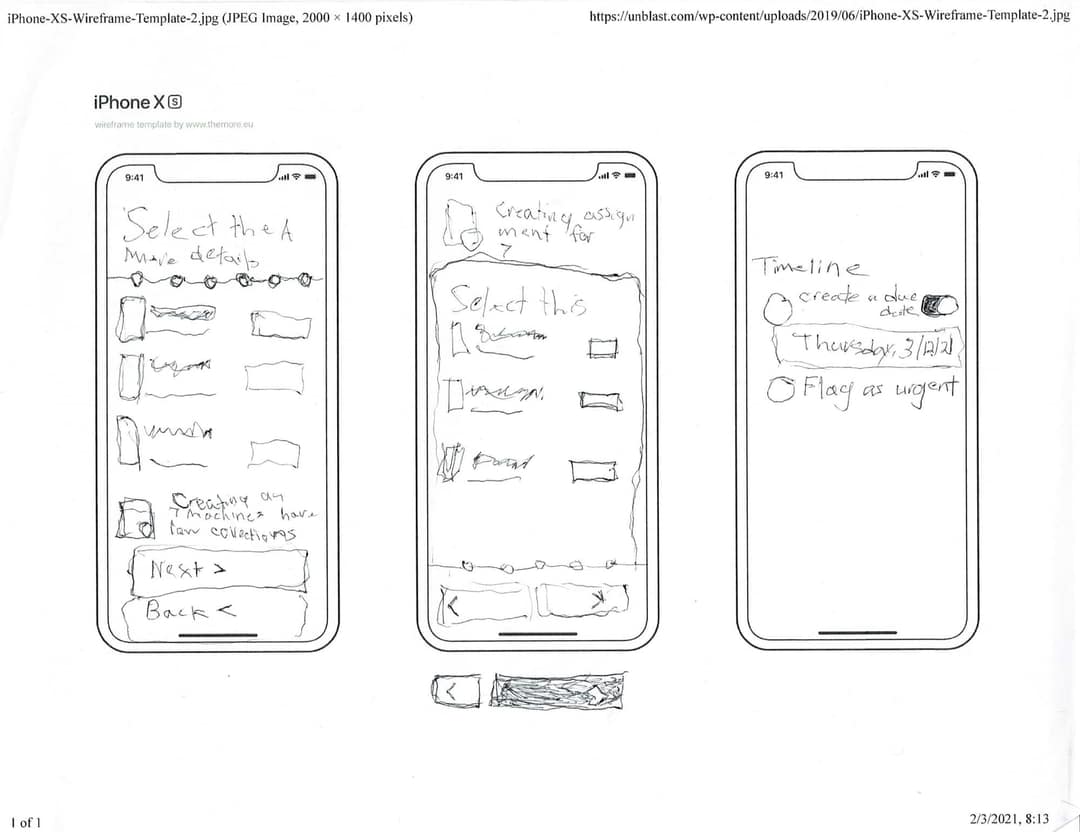 iPhone-XS-Wireframe-Template-2.jpg (JPEG Image, 2000 × 1400 pixels)
https://unblast.com/wp-content/uploads/2019/06/iPhone-XS-Wireframe-Template-2.jpg
iPhone X S
wireframe template by www.themore.eu
9:41
Select the A
More details
Creating an
7 machines have
few collections
Next >
Back <
9:41
Creating assign
ment for
7
Select this
<
>
<
>
9:41
Timeline
create a due
date
Thursday, 3/12/21
Flag as urgent
1 of 1
2/3/2021, 8:13